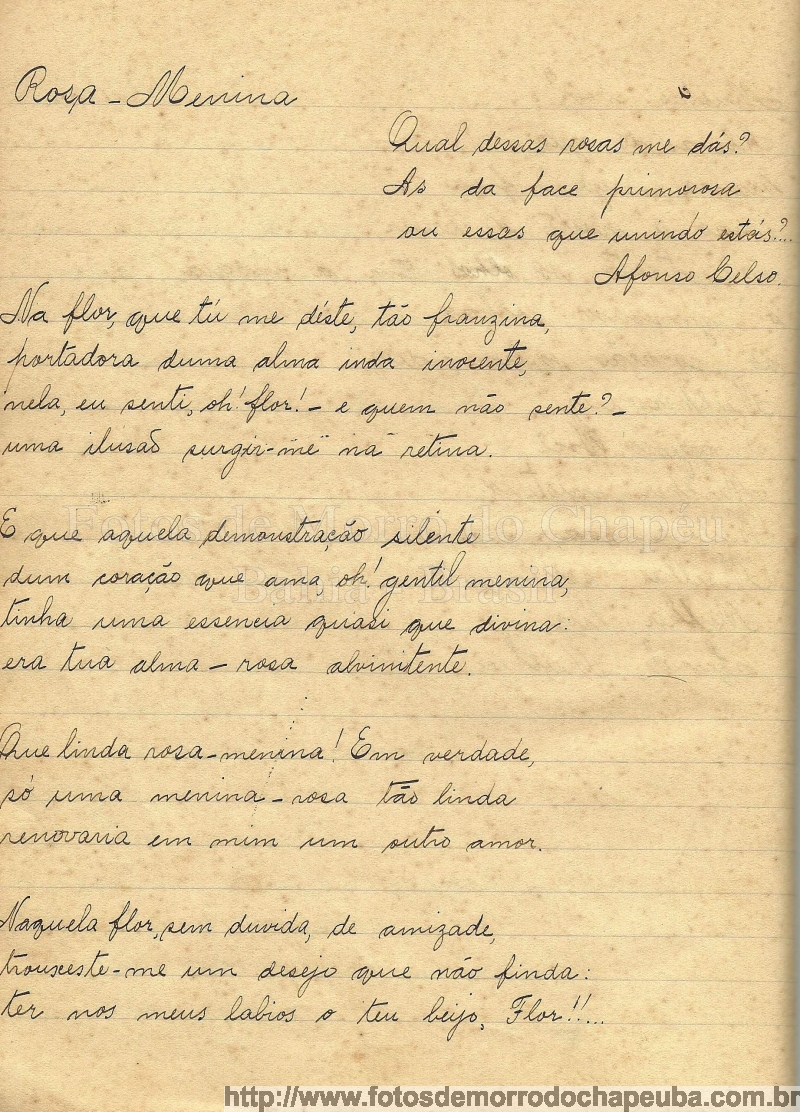 Rosa - Menina
Qual dessas rosas me dás?
As da face primorosa
ou essas que unindo estás?...
Afonso Celso.
Na flor, que tú me déste, tão franzina,
portadora duma alma inda inocente,
nela, eu senti, oh! flor! - e quem não sente? -
uma ilusão surgir-me na retina.
E que aquela demonstração silente
dum coração que ama, oh! gentil menina,
tinha uma essencia quasi que divina:
era tua alma - rosa alvinitente.
Que linda rosa-menina! Em verdade,
só uma menina-rosa tão linda
renovaria em mim um outro amor.
Naquela flor, sem duvida, de amizade,
trouxeste-me um desejo que não finda:
ter nos meus labios o teu beijo, Flor!!...
Fotos de Morro do Chapeu
Bahia - Brasil
http://www.fotosdemorrodochapeuba.com.br